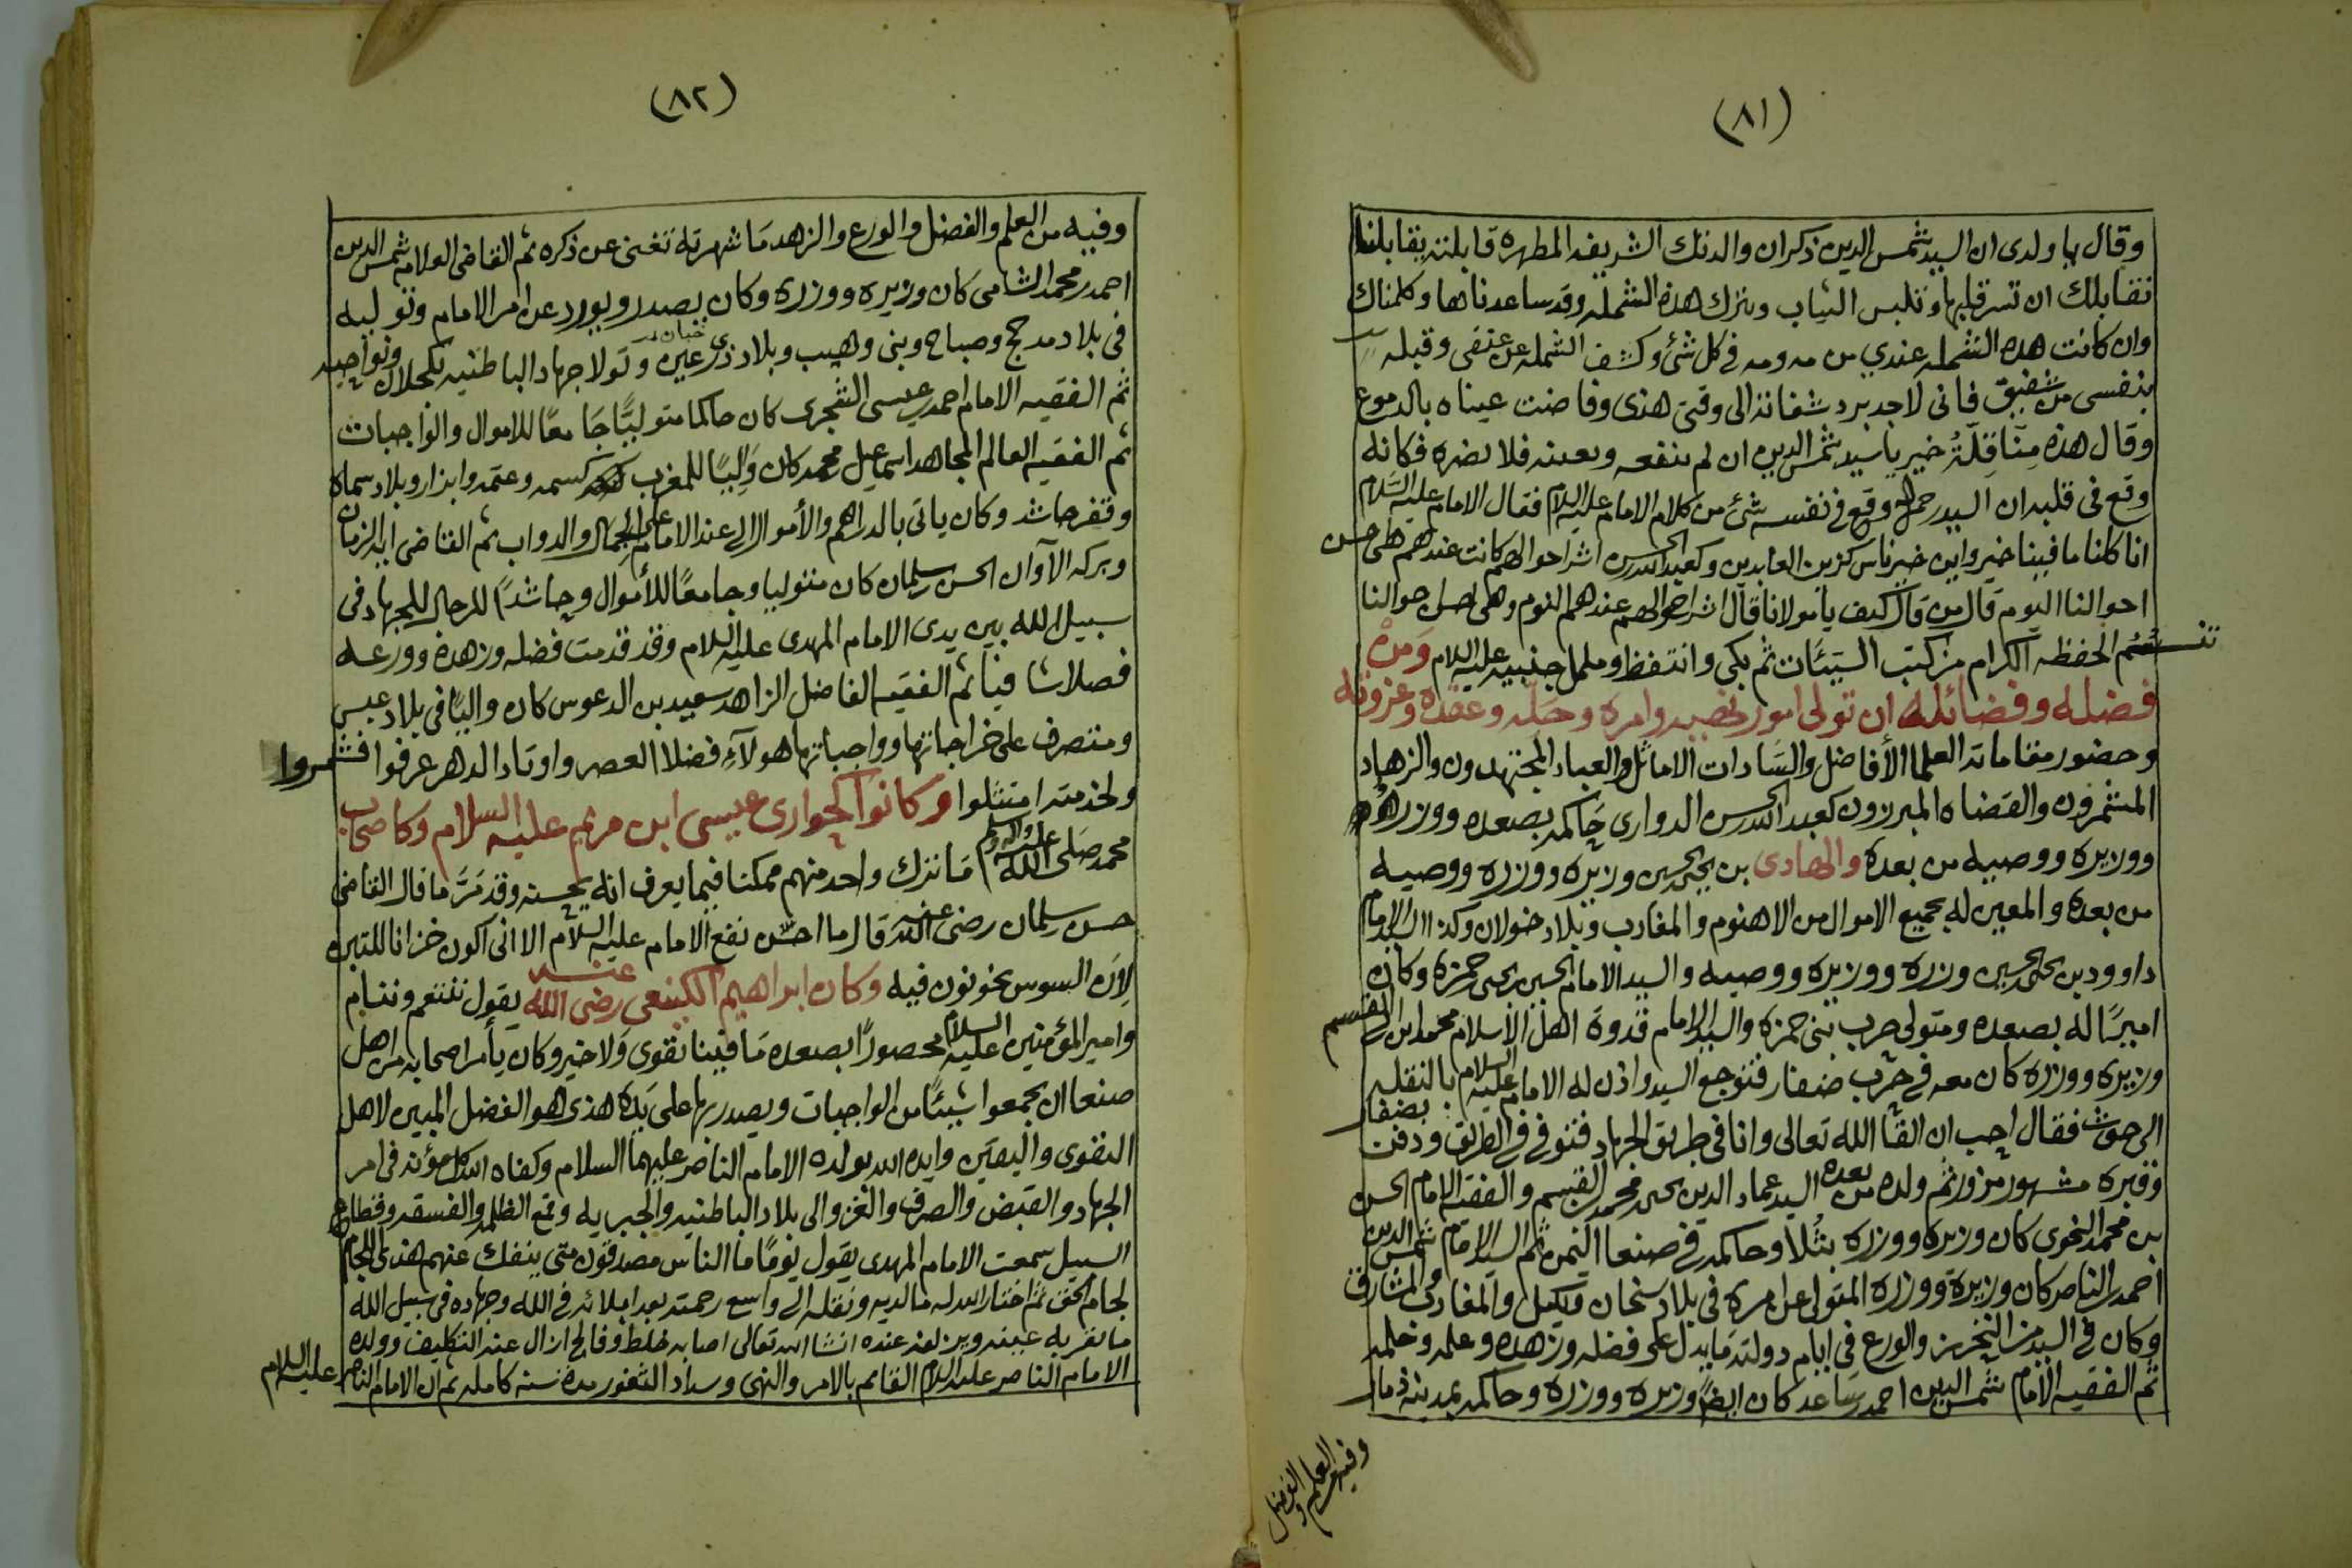 (٨١)
وقال يا ولدى ان السيد شمس الدين ذكر ان والدتك الشريفه المطهره قابلته يقابلنا
نقابلك ان تسر قلبها وتلبس الثياب وتترك هذه الشمله وقد ساعدناها وكلمناك
وان كانت هذه الشمله عندي من فى كل شئ وكشف الشمله عن عنقى وقبله
بنفسى من شفيق فانى لاجد برد شفاته الى وقتى هذى وفاضت عيناه بالدموع
وقال هذه مناقلة خير يا سيد شمس الدين ان لم ينفعه وبعينه فلا يضره فكانه
وقع فى قلبه ان السيد رحمه الله وقع فى نفسه شئ من كلام الامام عليه السلام فقال الامام عليه السلام
انا كلنا ما فينا خير واين خير ناس كزين العابدين وكعبد الله بن الحسن اشر احوالهم كانت عندهم هى احسن
احوالنا اليوم قال من قال كيف يا مولانا قال اشر احوالهم عندهم النوم وهى اصل احوالنا
الحفظه الكرام من كتب السيئات ثم بكى وانتفظ وململ جنبيه عليه السلام ومن
فضله وفضائله ان تولى امور نصيه وامره وحله وعقده وغزوته
وحضور مقاماته العلما الأفاضل والسادات الاماثل والعباد المجتهدون والزهاد
المشمرون والقضاه المبرزون كعبد الله بن الحسن الدوارى حاكمه بصعده ووزره
ووزيره ووصيه من بعده والهادى بن يحيى بن الحسين وزيره ووزره ووصيه
من بعده والمعين له بجميع الاموال من الاهنوم والمغارب وبلاد خولان وكذا السيد الامام
داوود بن يحيى بن الحسين وزره ووزيره ووصيه والسيد الامام الحسين بن يحيى حمزه وكان
اميرًا له بصعده ومتولى حرب بنى حمزه والسيد الامام قدوة اهل الأسلام محمد ابن ابى القسم
وزيره ووزره كان معه فى حرب ضفار فتوجع السيد واذن له الامام عليه السلام بالنقله
الى حوث فقال احب ان القا الله تعالى وانا فى طريق الجهاد فتوفى فى الطريق ودفن بضفار
وقبره مشهور مزور ثم ولده من بعده السيد عماد الدين يحيى بن محمد بن القسم والفقيه الامام الحسن
بن محمد النحوى كان وزيره ووزره بثُلا وحاكمه فى صنعا اليمن ثم السيد الامام شمس الدين
احمد بن الناصر كان وزيرة ووزره المتولى عن امره فى بلاد سنحان وبكيل والمغارب والمشارق
وكان فى السيد من التحرز والورع فى ايام دولته ما يدل على فضله وزهده وعلمه وحلمه
ثم الفقيه الامام شمس الدين احمد بن ساعد كان ايضًا وزيره ووزره وحاكمه بمدينة ذمار
وفيه من العلم والفضل
(٨٢)
وفيه من العلم والفضل والورع والزهد ما شهرته تغنى عن ذكره ثم القاضى العلامه شمس الدين
احمد بن محمد الشامى كان وزيره ووزره وكان يصدر ويورد عن امر الامام وتوليه
فى بلاد مدحج وصباح وبنى وهيب وبلاد ذى رعين خبان وتولا جهاد الباطنيه بكحلان ونواحيه
ثم الفقيه الامام احمد بن عيسى الشجرى كان حاكما متوليًا جامعًا للاموال والواجبات
ثم الفقيه العالم المجاهد اسماعيل بن محمد كان واليًا للمغرب كسمه وعتمه وابزار وبلاد سماه
وقفر حاشد وكان ياتى بالدراهم والأموال الى عند الامام على الجمال والدواب ثم القاضى ابه الزمان
وبركه الآوان الحسن بن سليمان كان متوليا وجامعًا للأموال وحاشدًا للرجال للجهاد فى
سبيل الله بين يدى الامام المهدى عليه السلام وقد قدمت فضله وزهده وورعه
فصلا شافيا ثم الفقيه الفاضل الزاهد سعيد بن الدعوس كان واليًا فى بلاد عبس
ومتصرف على خراجاتها وواجباتها هولآء فضلا العصر واوتاد الدهر عرفوا فشمروا
ولخدمته امتثلوا وكانوا كحوارى عيسى ابن مريم عليه السلام وكاصحاب
محمد صلى الله عليه واله وسلم ما نترك واحد منهم ممكنا فيما يعرف انه يحسنه وقد مَرّ ما قال القاضى
حسن بن سليمان رضى الله عنه قال ما احسن نفع الامام عليه السلام الا انى اكون خزانا للتبن
لان السوس يخونون فيه وكان ابراهيم الكينعى رضى الله عنه يقول نتنعم وننام
وامير المؤمنين عليه السلام محصورًا بصعده ما فينا تقوى ولا خير وكان يأمر اصحابه من اهل
صنعا ان يجمعوا شيئًا من الواجبات ويصدر بها على يده هذى هو الفضل المبين لاهل
التقوى واليقين وايده الله بولده الامام الناصر عليهما السلام وكفاه الله كل مؤنه فى امر
الجهاد والقبض والصرف والغزو الى بلاد الباطنيه والجبريه وقمع الظلمه والفسقه وقطاع
السبيل سمعت الامام المهدى يقول يومًا ما الناس مصدقون متى ينفك عنهم هذى اللجام
لجام الحق ثم اختار الله له ما لديه ونقله الى واسع رحمته بعد ابلائه فى الله وجهاده فى سبيل الله
ما تقر به عينه ويزلفه عنده انشا الله تعالى اصابه خلط وفالج ازال عنه التكليف وولده
الامام الناصر عليه السلام القائم بالامر والنهى وسداد الثغور مدة سنه كامله ثم ان الامام الناصر عليه السلام